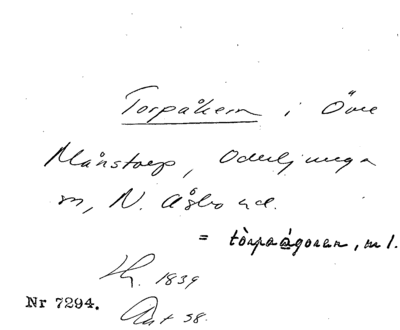 Torpåkern i Övre
Månstorp, Oderljunga
sn, N. Åsbo hd.
= tòrpaågoren, ml.
Hr. 1839
Nr 7294.
Akt 38.